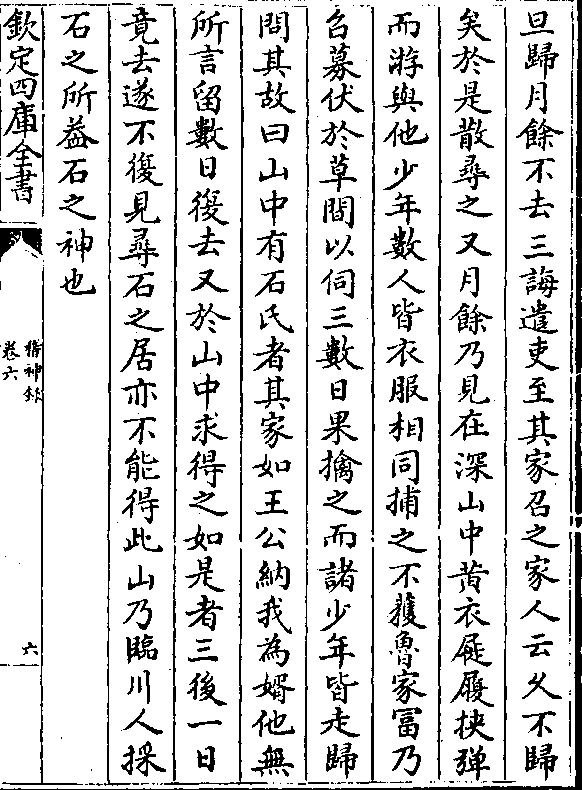 旦歸月餘不去三誨遣吏至其家召之家人云乆不歸
矣於是散尋之又月餘乃見在深山中黄衣屣履挟彈
而游與他少年數人皆衣服相同捕之不獲魯家冨乃
召募伏於草間以伺三數日果擒之而諸少年皆走歸
問其故曰山中有石氏者其家如王公納我為婿他無
所言留數日復去又於山中求得之如是者三後一日
竟去遂不復見尋石之居亦不能得此山乃臨川人採
石之所葢石之神也
欽定四庫全書
稽神錄
卷六
六